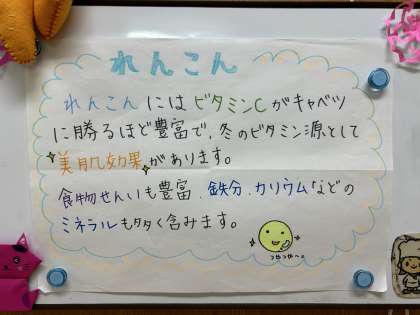 れんこん
れんこんにはビタミンCがキャベツ
に勝るほど豊富で、冬のビタミン源として
美肌効果があります。
食物せんいも豊富、鉄分、カリウムなどの
ミネラルも多く含みます。
つやつや〜